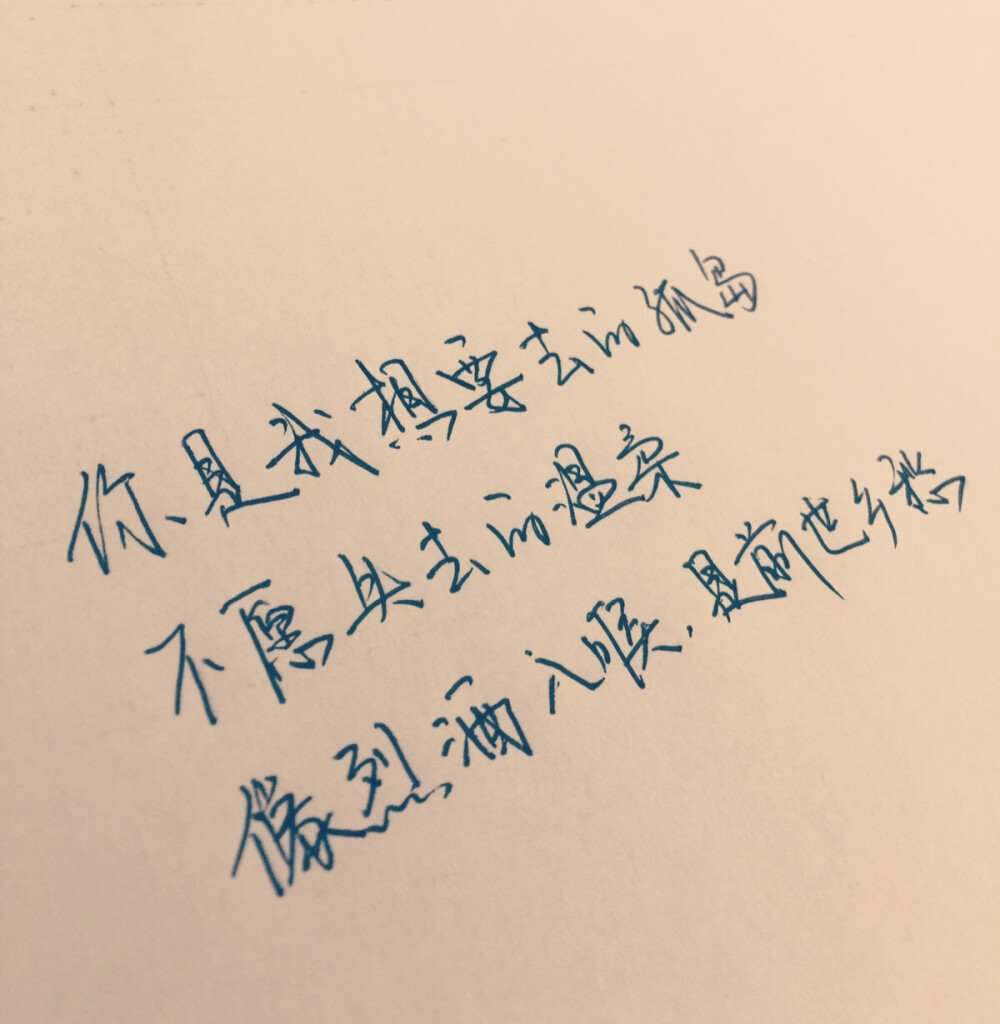 你是我想要去的孤岛
不愿失去的温柔
像烈酒入喉，是前世乡愁